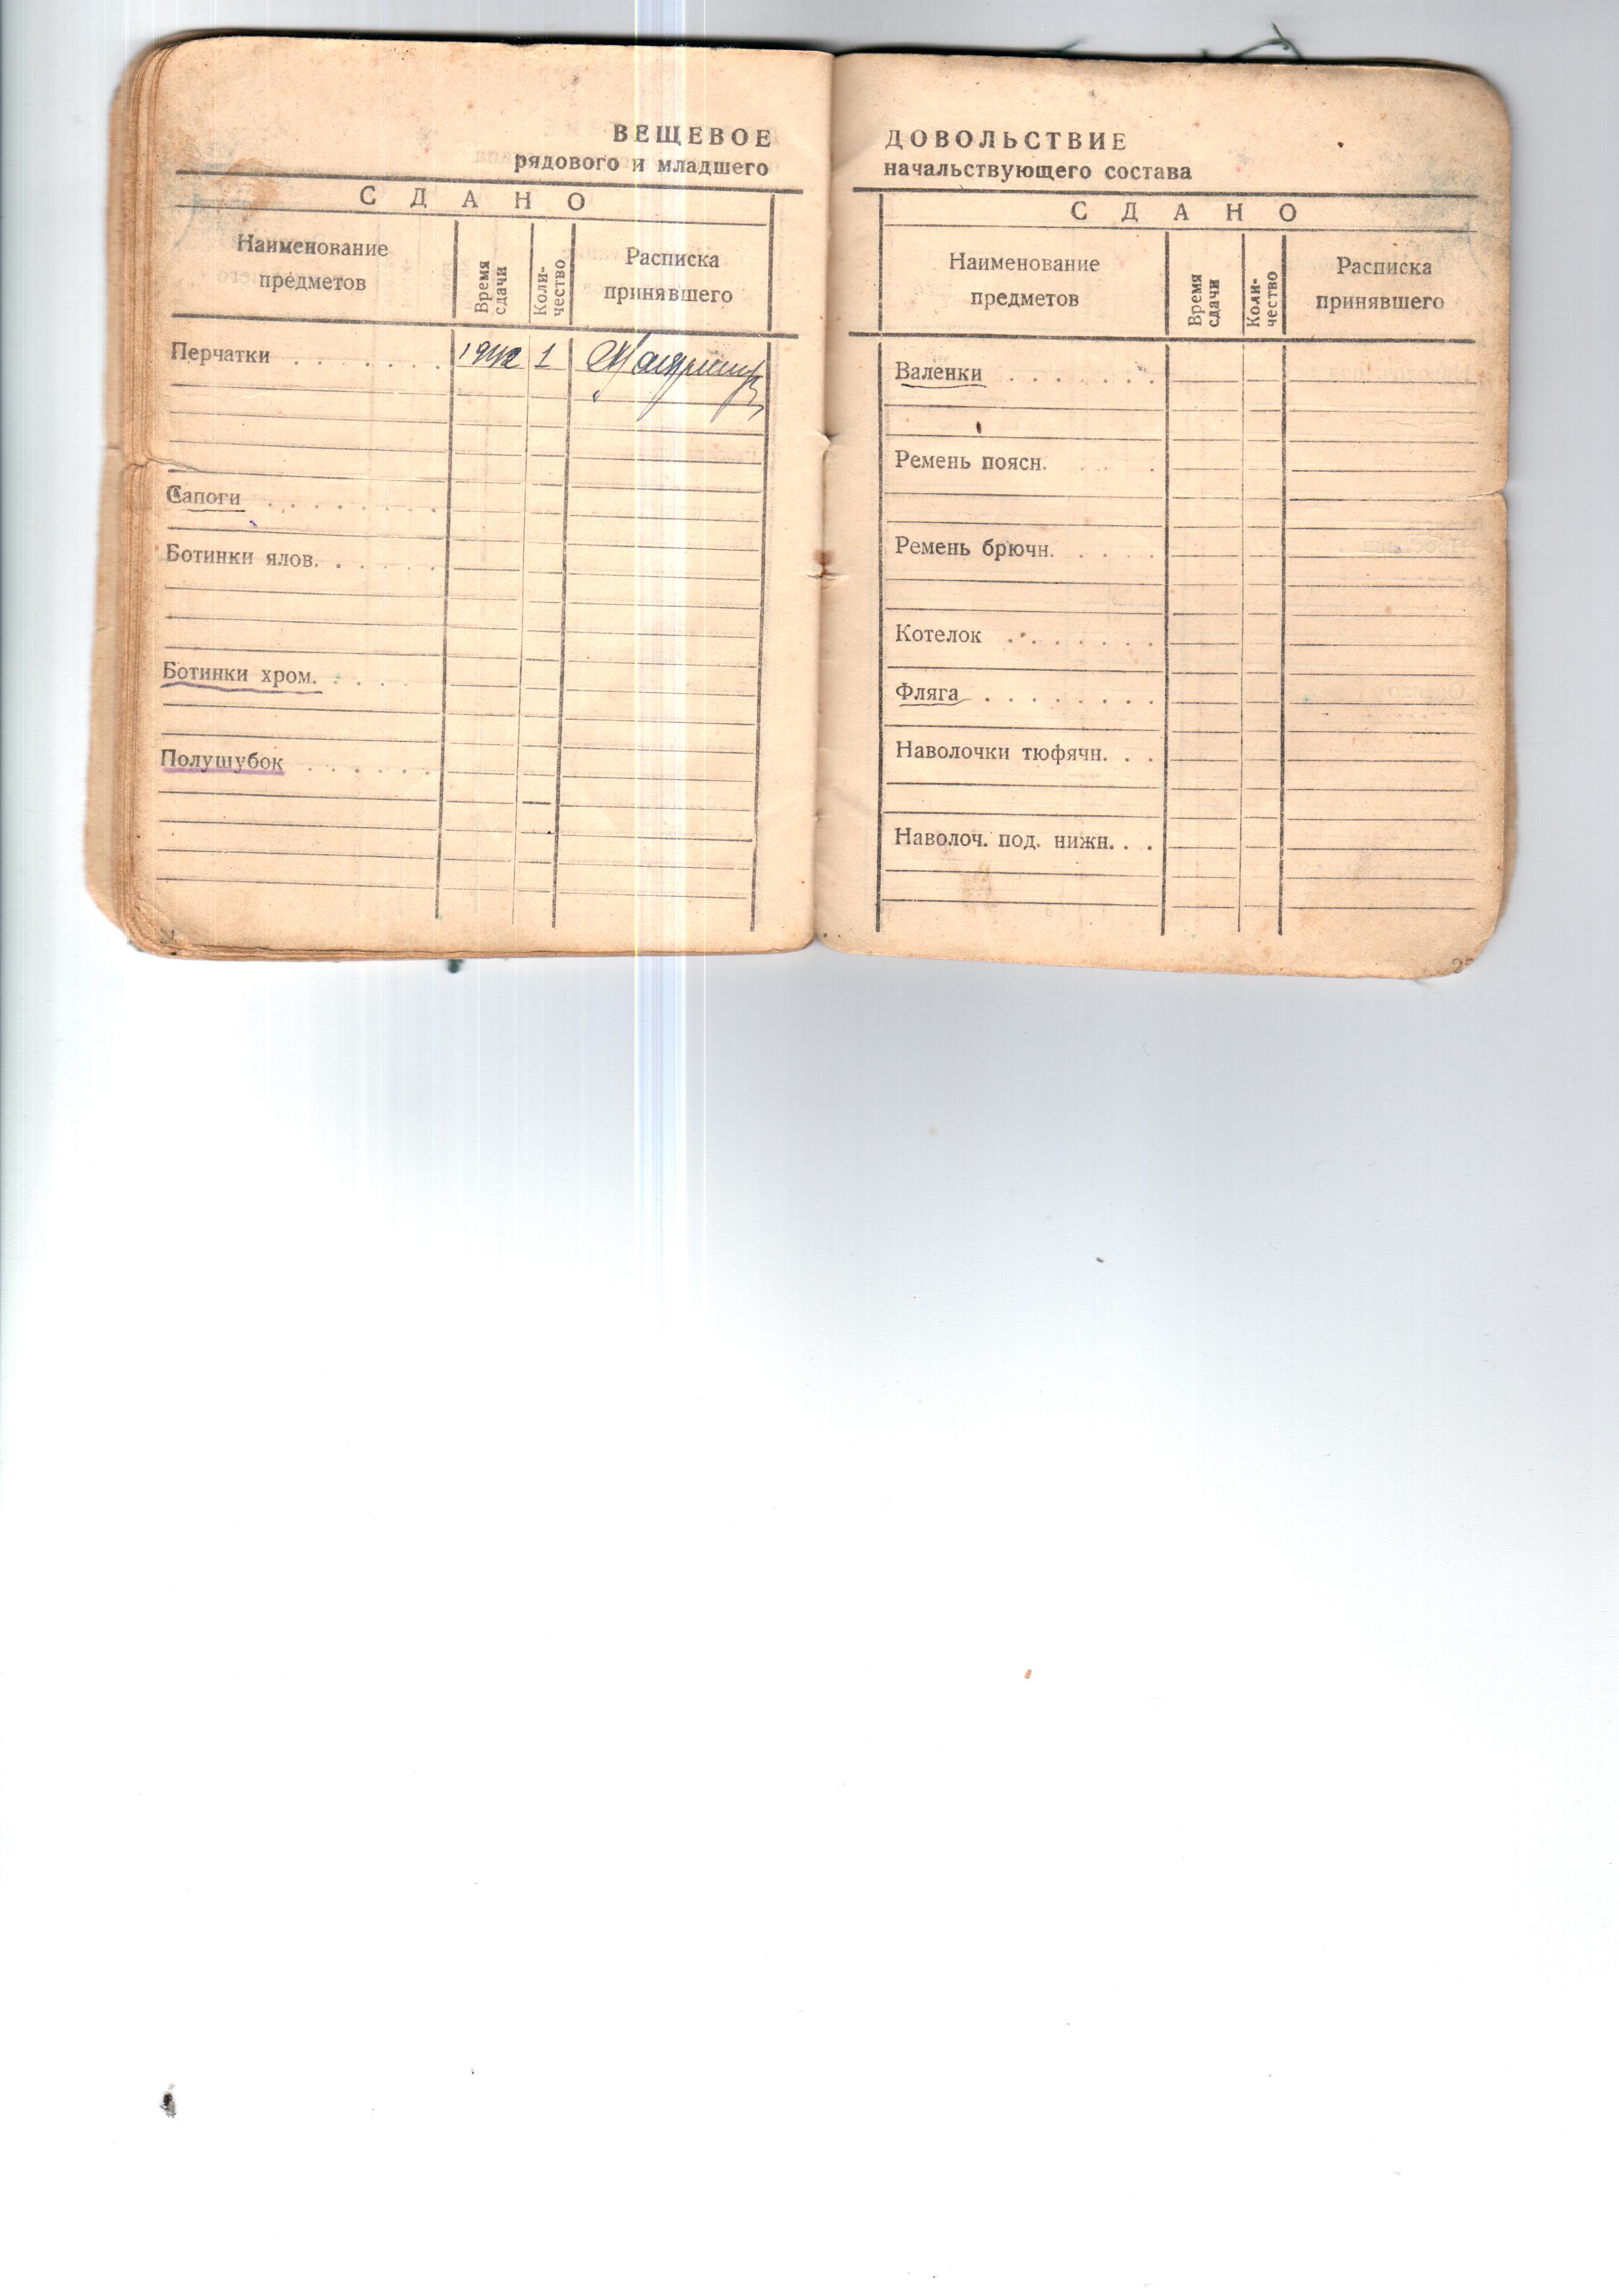 ВЕЩЕВОЕ
рядового и младшего
СДАНО
Наименование предметов
Время сдачи
Количество
Расписка принявшего
Перчатки . . . . . . . 1942 1
Сапоги . . . . . . . .
Ботинки ялов. . . . . .
Ботинки хром. . . . .
Полушубок . . . . . .
ДОВОЛЬСТВИЕ
начальствующего состава
СДАНО
Наименование предметов
Время сдачи
Коли-чество
Расписка принявшего
Валенки . . . . . .
Ремень поясн. . . .
Ремень брючн. . . . .
Котелок . . . . . . .
Фляга . . . . . . . .
Наволочки тюфячн. . .
Наволоч. под. нижн. . .